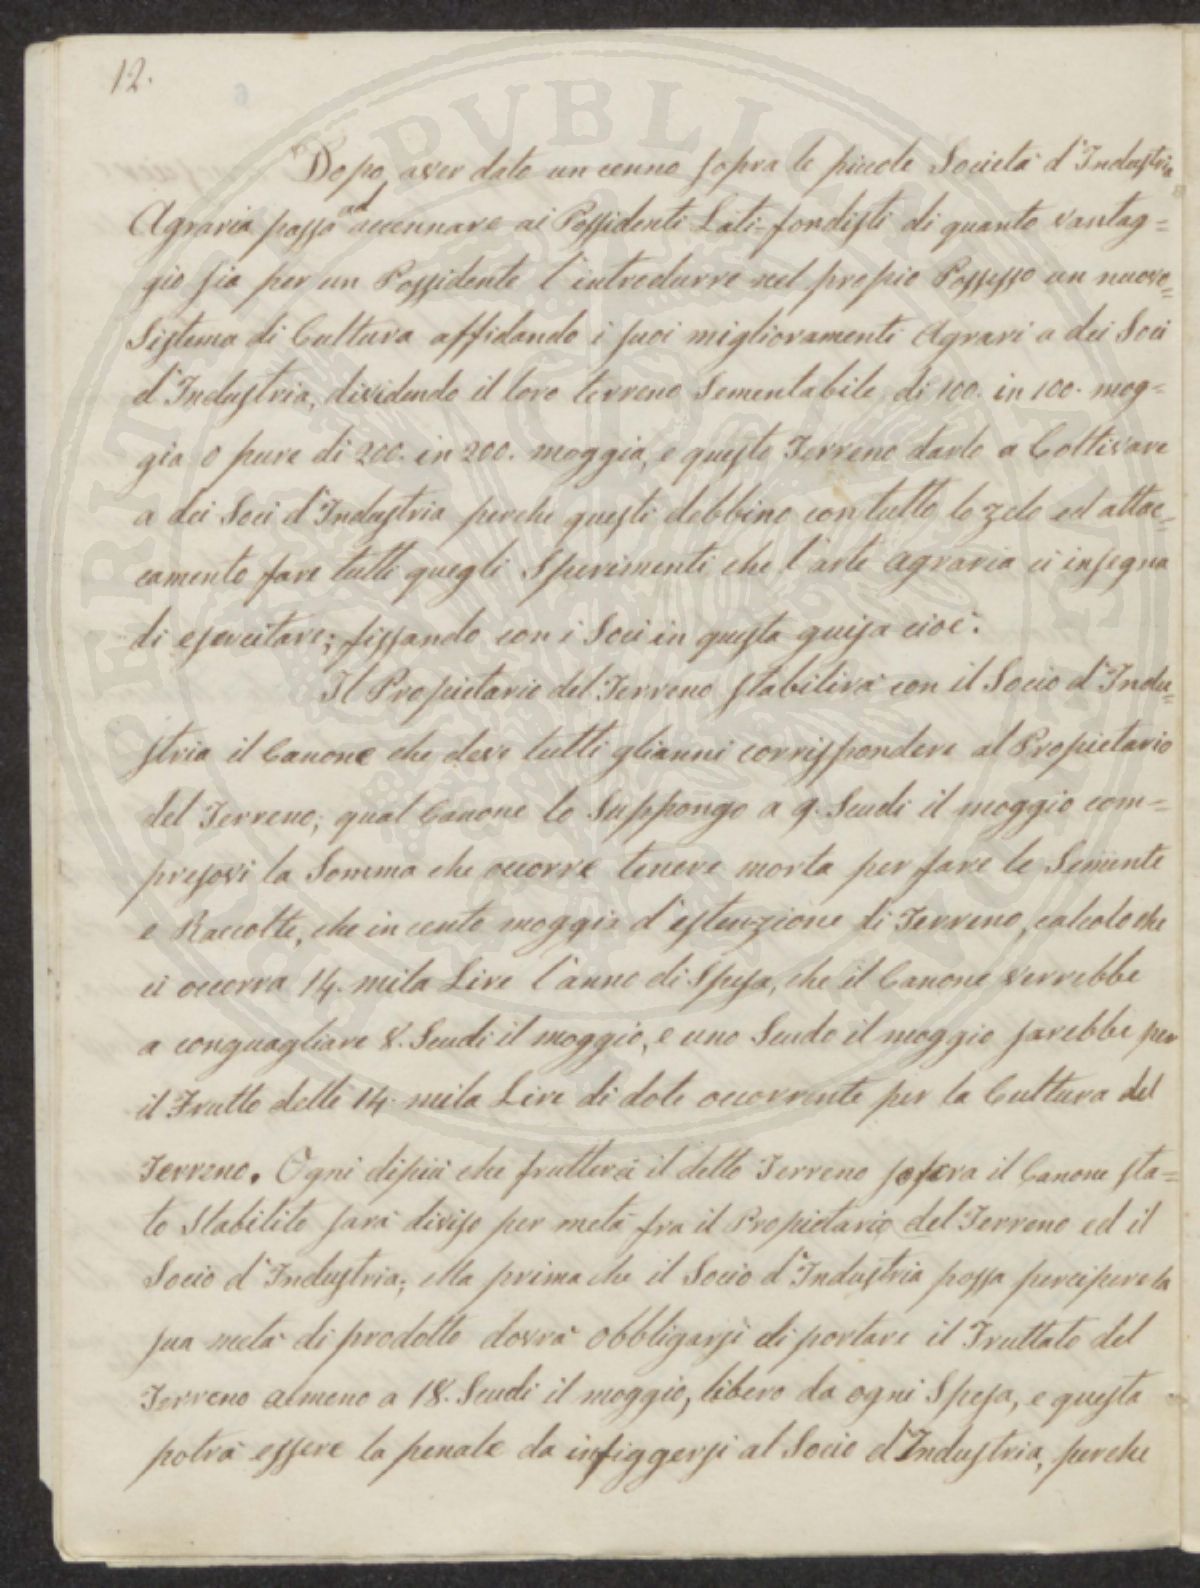 12.
Dopo aver dato un cenno sopra le piccole Società d'Industria
Agraria passo ad accennare ai Possidenti Lati-fondisti di quanto vantag=
gio sia per un Possidente l'introdurre nel propio Possesso un nuovo
Sistema di Cultura affidando i suoi miglioramenti Agrari a dei Soci
d'Industria, dividendo il loro terreno Sementabile di 100. in 100. mog=
gia o pure di 200. in 200. moggia, e questo Terreno darlo a Coltivare
a dei Soci d'Industria perche questi debbino con tutto lo zelo ed attac=
camento fare tutti quegli Sperimenti che l'arte agraria ci insegna
di esercitare; fissando con i Soci in questa guisa cioè.
Il Propietario del Terreno stabilirà con il Socio d'Indu=
stria il Canone che deve tutti glianni corrisspondere al Propietario
del Terreno; qual Canone lo Suppongo a 9. Scudi il moggio com=
presovi la Somma che occorre tenere morta per fare le Semente
e Raccolte, che in cento moggia d'estenzione di Terreno, calcolo che
ci occorra 14. mila Lire l'anno di Spesa, che il Canone verrebbe
a conguagliare 8. Scudi il moggio, e uno Scudo il moggio sarebbe per
il Frutto delle 14. mila Lire di dote occorrente per la Cultura del
Terreno. Ogni dipiù che frutterà il detto Terreno sopra il Canone sta=
to Stabilito sarà diviso per metà fra il Propietario del Terreno ed il
Socio d'Industria; Ma prima che il Socio d'Industria possa percipere la
sua metà di prodotto dovrà obbligarsi di portare il Fruttato del
Terreno almeno a 18. Scudi il moggio, libero da ogni Spesa, e questa
potrà essere la penale da infiggersi al Socio d'Industria, perche
PUBLICAE
PERITI